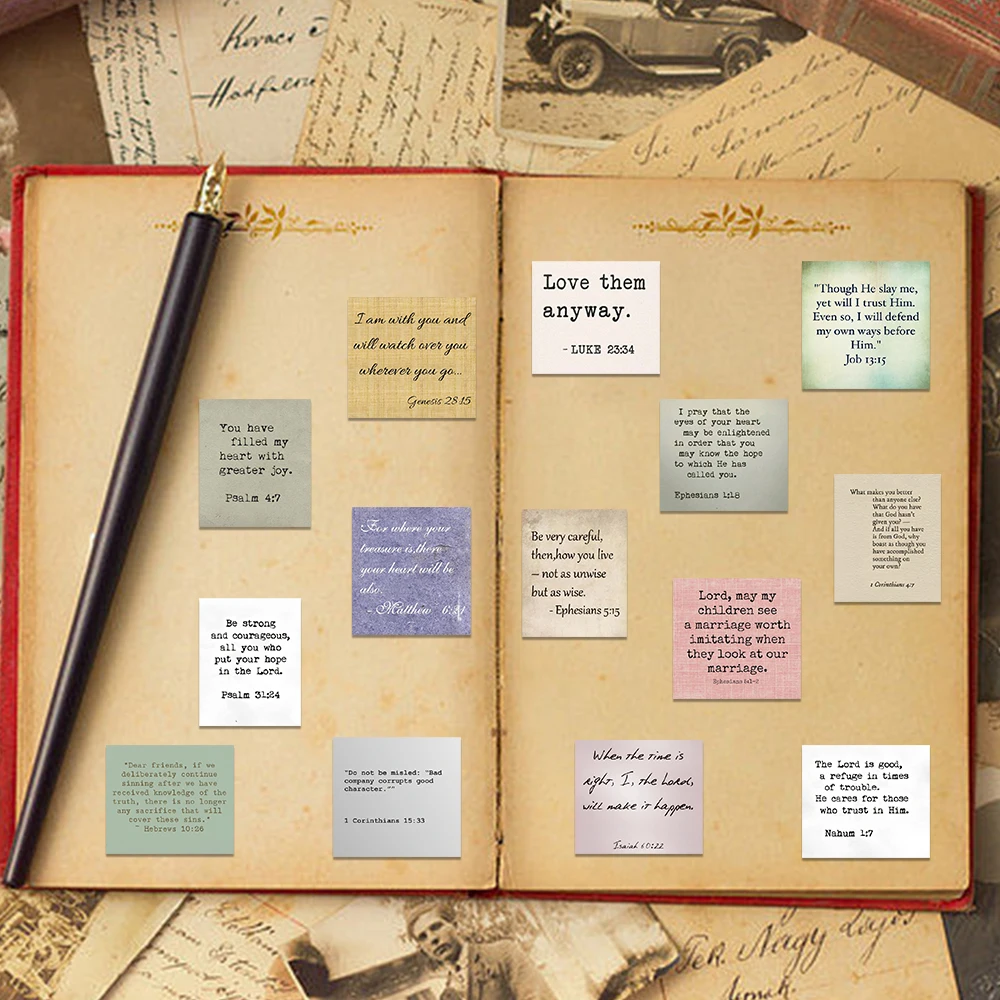 Kovács
I am with you and
will watch over you
wherever you go...
Genesis 28:15
You have
filled my
heart with
greater joy.
Psalm 4:7
For where your
treasure is,there
your heart will be
also.
- Matthew 6:21
Be strong
and courageous,
all you who
put your hope
in the Lord.
Psalm 31:24
"Dear friends, if we
deliberately continue
sinning after we have
received knowledge of the
truth, there is no longer
any sacrifice that will
cover these sins."
~ Hebrews 10:26
"Do not be misled: "Bad
company corrupts good
character.""
1 Corinthians 15:33
Love them
anyway.
- LUKE 23:34
"Though He slay me,
yet will I trust Him.
Even so, I will defend
my own ways before
Him."
Job 13:15
I pray that the
eyes of your heart
may be enlightened
in order that you
may know the hope
to which He has
called you.
Ephesians 1:18
What makes you better
than anyone else?
What do you have
that God hasn't
given you? —
And if all you have
is from God, why
boast as though you
have accomplished
something on
your own?
1 Corinthians 4:7
Be very careful,
then,how you live
– not as unwise
but as wise.
- Ephesians 5:15
Lord, may my
children see
a marriage worth
imitating when
they look at our
marriage.
Ephesians 5:1-2
When the time is
right, I, the Lord,
will make it happen.
Isaiah 60:22
The Lord is good,
a refuge in times
of trouble.
He cares for those
who trust in Him.
Nahum 1:7
Nagy Lajos